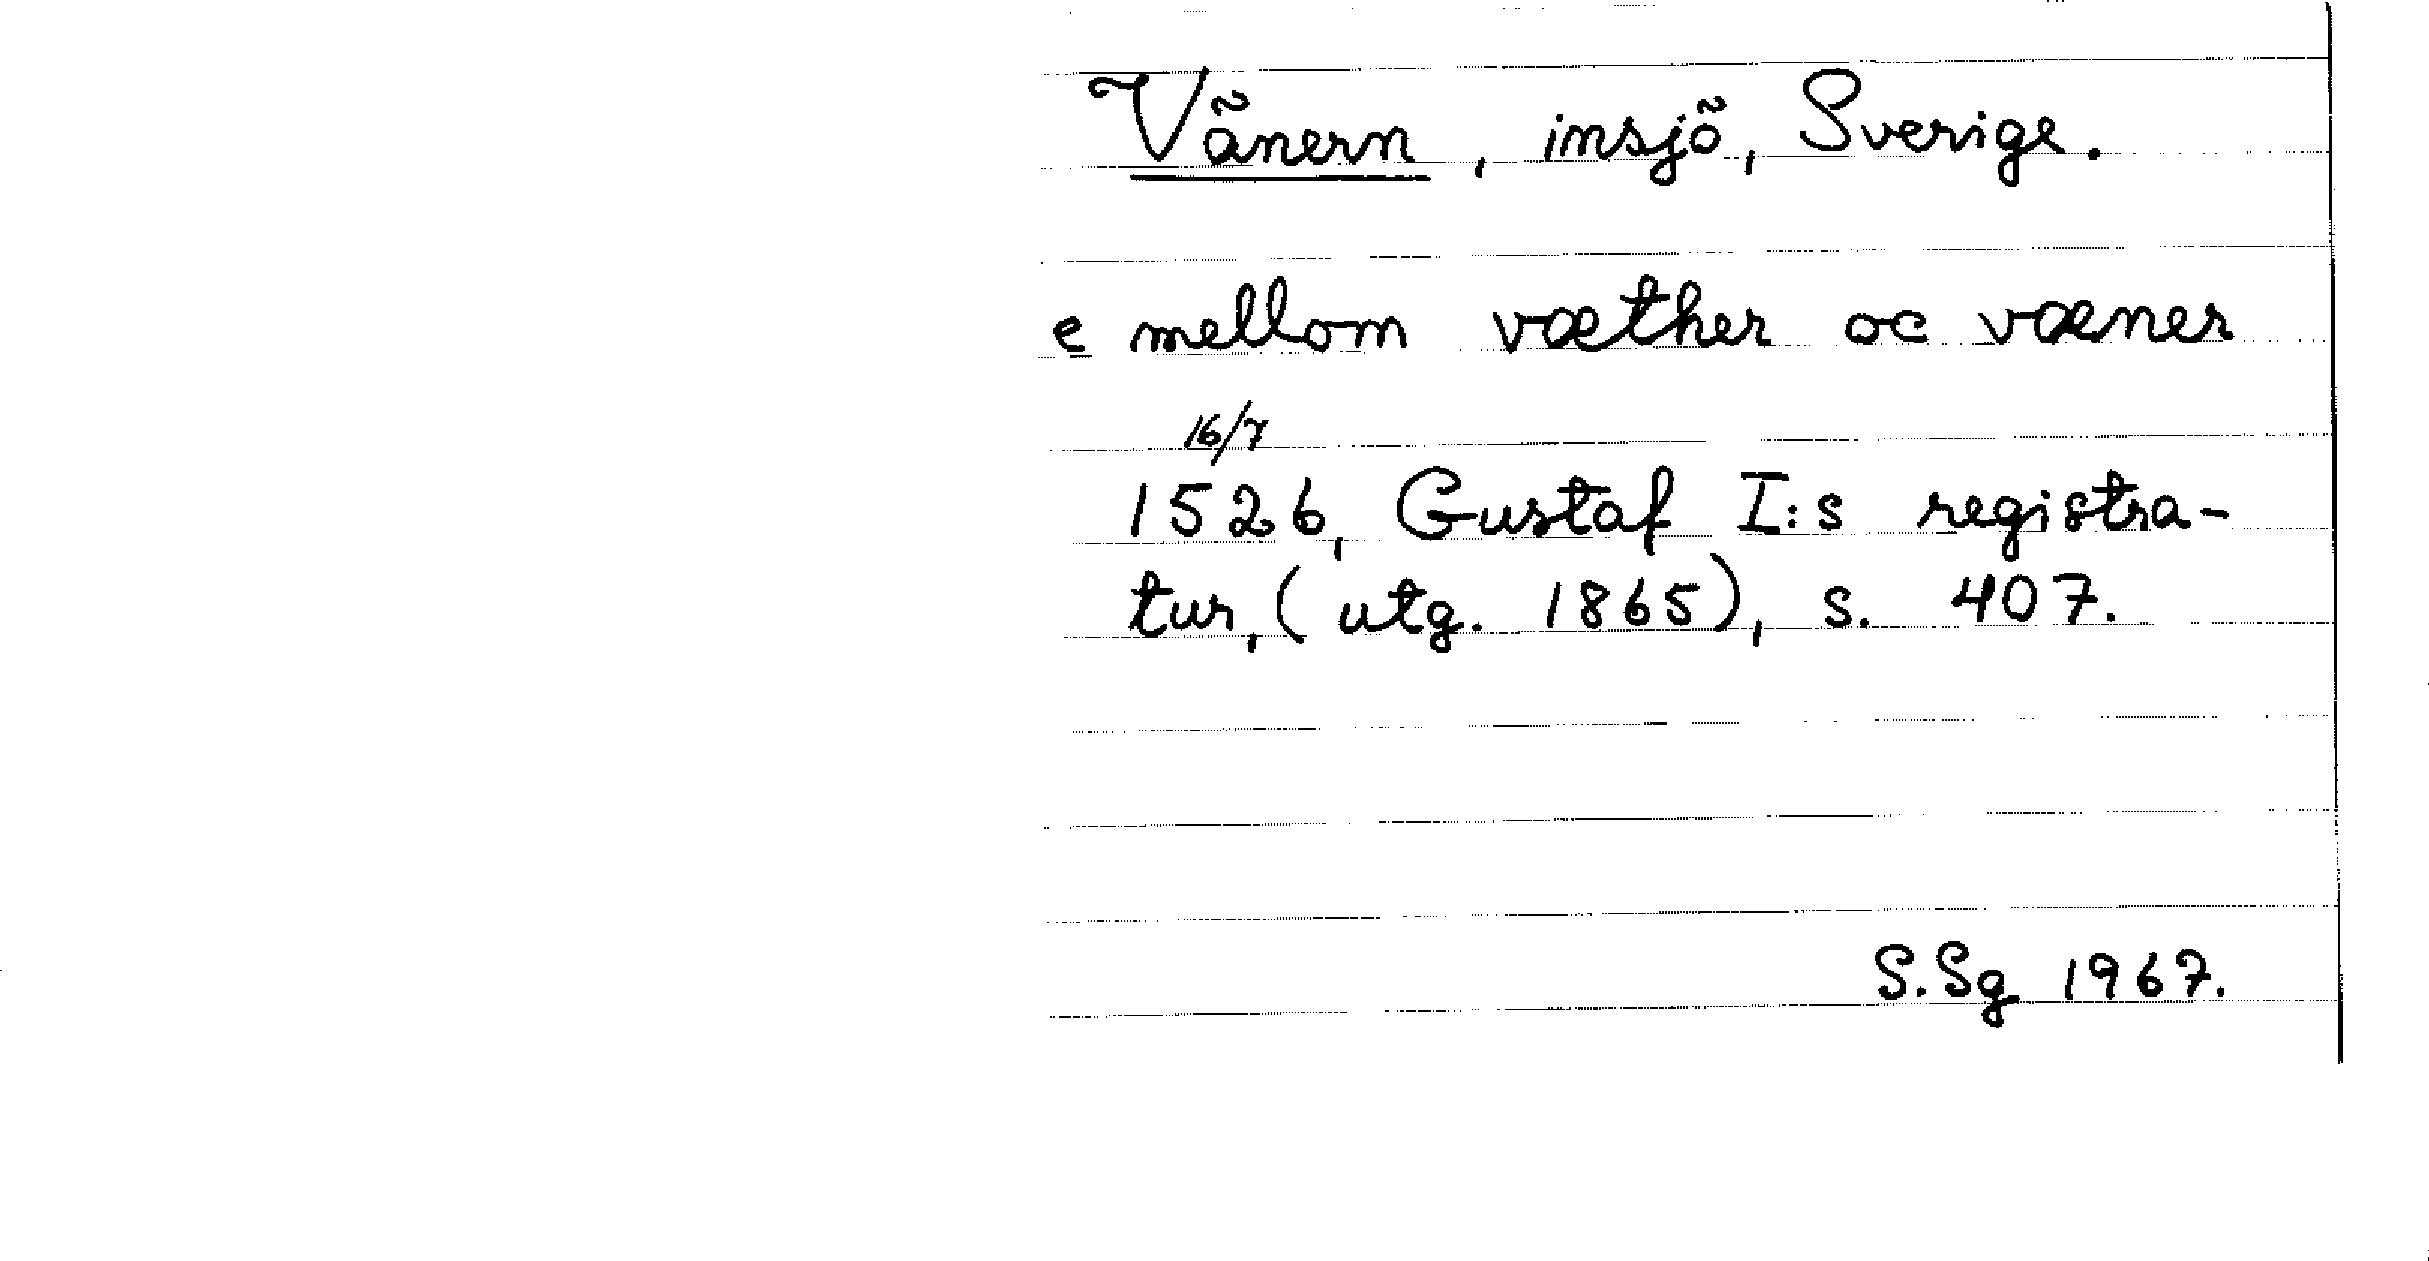 Vänern, insjö, Sverige.
e mellom væther oc væner
16/7
1526, Gustaf I:s registra-
tur, (utg. 1865), s. 407.
S.Sg 1967.